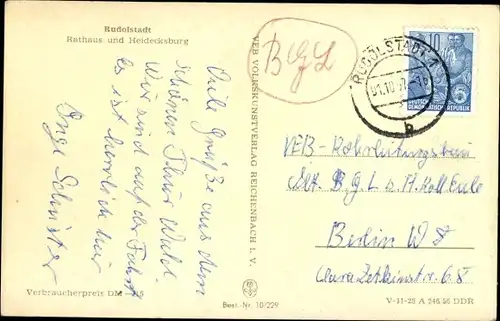 Rudolstadt
Rathaus und Heidecksburg
BGL
VEB VOLKSKUNSTVERLAG REICHENBACH I. V.
RUDOLSTADT
01.10.57
b
10
DEUTSCHE
DEMOKRATISCHE REPUBLIK
Viele Grüße aus dem
schönen Thür Wald
Wir sind auf der Fahrt
es ist herrlich hier
Inge Schuster
VEB - Rohrleitungsbau
Abt. B. G. L. z. H. Koll Eule
Berlin W 8
Clara Zetkinstr. 68
Verbraucherpreis DM
Best.-Nr. 10/229
V-11-28 A 246.56 DDR